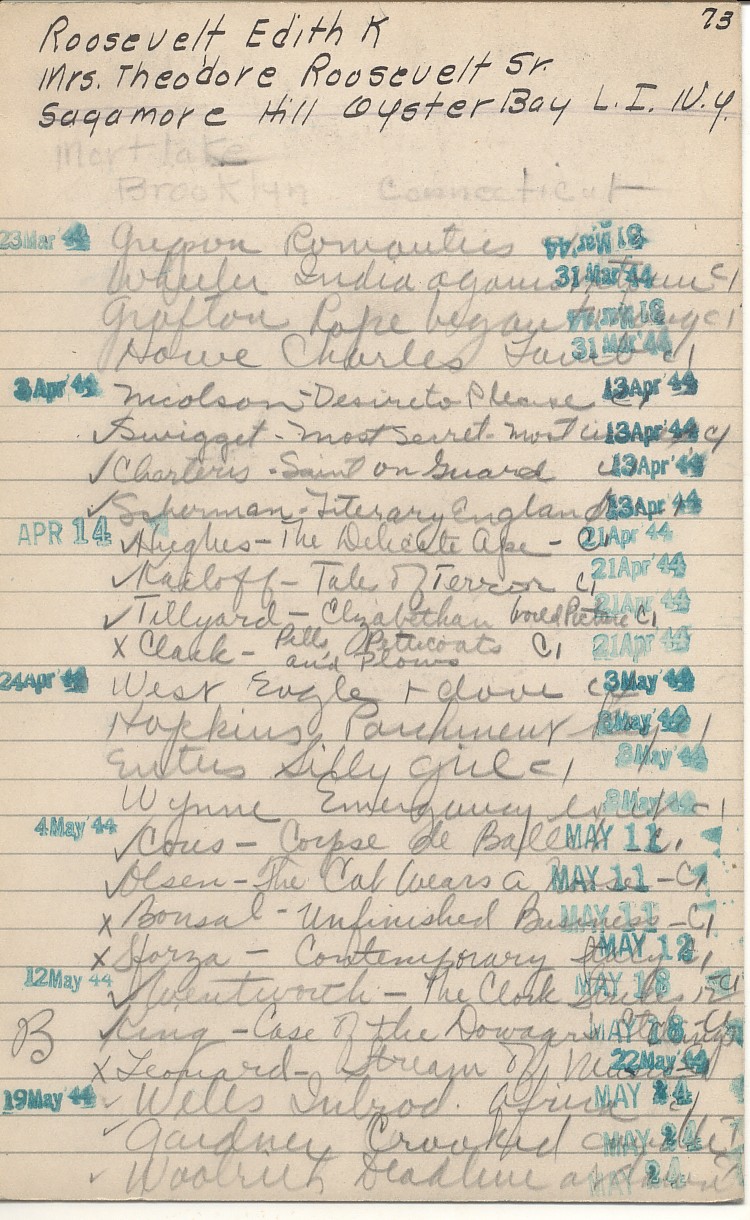 73
Roosevelt Edith K
Mrs. Theodore Roosevelt Sr.
Sagamore Hill Oyster Bay L. I. N.Y.
Mortlake
Brooklyn Connecticut
23 Mar '44 Grierson Romantics 31 Mar '44
Wheeler India against c1 31 Mar '44
Grafton Rope began to c1 31 Mar '44
Howe Charles c1 31 Mar '44
3 Apr '44 Nicolson - Desire to Please c1 13 Apr '44
✓ Swigget - Most Secret - Most c1 13 Apr '44
✓ Charteris - Saint on Guard c1 13 Apr '44
✓ Sherman - Literary England 13 Apr '44
APR 14 ✓ Hughes - The Delicate Ape - C1 21 Apr '44
✓ Karloff - Tales of Terror c1 21 Apr '44
✓ Tillyard - Elizabethan World Picture C1 21 Apr '44
x Clark - Pills Petticoats and Plows C1 21 Apr '44
24 Apr '44 West Eagle + dove c1 3 May '44
Hopkins Parchment 1 3 May '44
Enters Silly girl c1 3 May '44
Wynne Emergency exit c1 3 May '44
4 May '44 ✓ Cores - Corpse de Ballet c1 MAY 11
✓ Olsen - The Cat Wears a Noose - C1 MAY 11
x Bonsal - Unfinished Business - C1 MAY 11
x Sforza - Contemporary Italy C1 MAY 12
12 May '44 ✓ Wentworth - The Clock Strikes 12 C1 MAY 18
B ✓ King - Case of the Dowager's Etchings C1 MAY 18
x Leonard - Stream of 22 May '44
19 May '44 ✓ Wells Introd. Africa c1 MAY 24
Gardner Crooked candle MAY 24
✓ Woolrich Deadline at dawn MAY 24